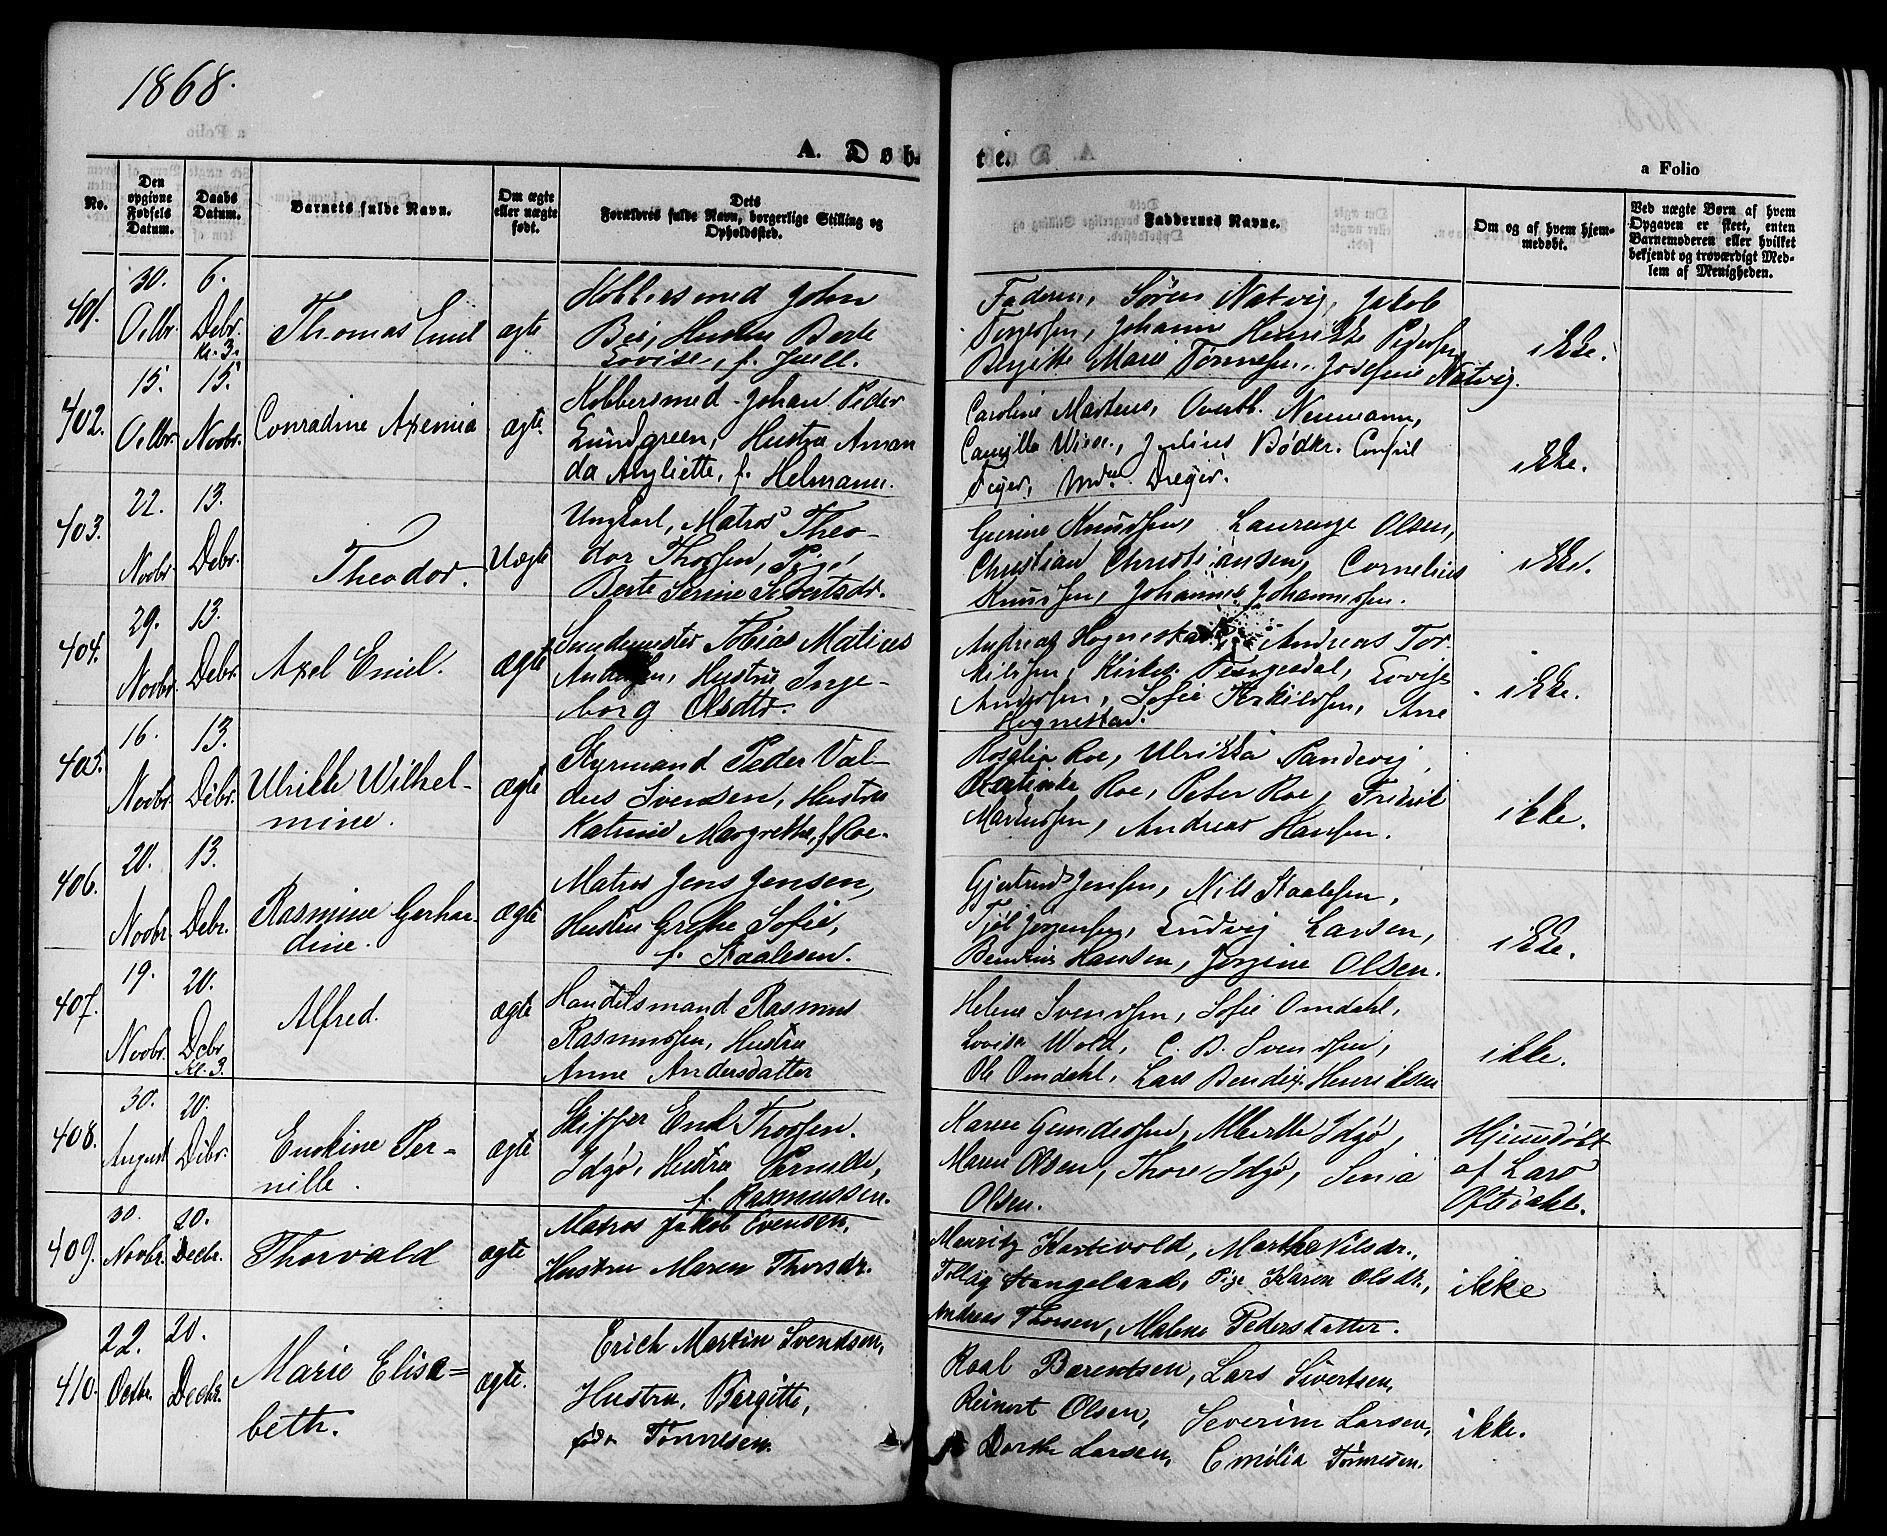 1868.
A. Døb-
te.
a Folio
No.
Den opgivne Fødsels Datum.
Daabs Datum.
Barnets fulde Navn.
Om ægte eller uægte født.
Dets Forældres fulde Navn, borgerlige Stilling og Opholdssted.
Faddernes Navne.
Om og af hvem hjemmedøbt.
Ved uægte Børn af hvem Opgaven er skeet, enten Barnemoderen eller hvilket bekjendt og troværdigt Medlem af Menigheden.
401.
30. Octbr.
6. Debr. Kl. 3.
Thomas Emil
ægte
Kobbersmed John
Bei, Hustru Berte
Lovise, f. Juell.
Faderen, Søren Natvig, Jakob
Torgersen, Johanne Henrikke Pedersen
Bergitte Marie Tønnesen, Josefine Natvig.
ikke.
402.
15. Octbr.
15. Novbr.
Conradine Axemia
ægte.
Kobbersmed Johan Peder
Lundgreen, Hustru Aman
da Angliette, f. Helmann.
Caroline Martens, Neumann,
Camilla Julius Bødkr. Consul
Dreyer.
ikke.
403.
22. Novbr.
13. Debr.
Theodor.
Uægte
Ungkarl, Matros Theo-
dor Thorsen, Pige,
Berte Serine Sivertsdr.
Gurine Knudsen, Laurenze Olsen,
Christian Christiansen, Cornelius
Knudsen, Johannes Johannessen.
ikke.
404.
29. Novbr.
13. Debr.
Axel Emil.
ægte
Tobias Matius
Andersen, Hustru Inge-
borg Olsdtr.
Andreas Hognestad, Andreas Tor
kilsen, Tengesdal, Lovise
Andersen, Sofie Torkildsen, Ane
Hognestad.
ikke.
405.
16. Novbr.
13. Debr.
Ulrikke Wilhel-
mine.
ægte
Styrmand Peder Val-
dus Svensen, Hustru
Katrine Margrethe, f. Roe.
Rosalia Roe, Ulrikka Sandvig,
Roe, Peter Roe, Fredrik
Martinssen, Andreas Hansen.
ikke.
406.
20. Novbr.
13. Debr.
Rasmine Gerhar-
dine.
ægte
Matros Jens Jensen,
Hustru Grethe Sofie,
f. Staalesen.
Gjertrud Jensen, Nils Staalesen,
Jørgensen, Ludvig Larsen,
Hansen, Jørgine Olsen.
ikke.
407.
19. Novbr.
20. Debr. Kl. 3.
Alfred.
ægte
Handelsmand Rasmus
Rasmussen, Hustru
Anne Andersdatter
Helene Svendsen, Sofie Omdahl,
Lovise Wold, C. B. Svendsen,
Ole Omdahl, Lars Bendix Henriksen
ikke.
408.
30. August
20. Debr.
Enokine Per-
nille.
ægte
Skipper Enok Thorsen.
Idsø, Hustru Pernille,
f. Rasmussen.
Karen Gundersen, Idsø,
Maren Olsen, Thore Idsø, Senia
Olsen.
Hjemdøbt
af Lars
Oftedahl.
409.
30. Novbr.
20. Decbr.
Thorvald
ægte
Matros Jakob Evensen,
Hustru Maren Thorsdr.
Mauritz Kartevold, Marthe Nilsdr.,
Tollag Stangeland, Pige Karen Olsdr.,
Andreas Thorsen, Malene Pedersdatter.
ikke
410.
22. Octbr.
20. Decbr.
Marie Elisa=
beth.
ægte.
Erich Martin Svendsen,
Hustru, Bergitte,
født Tønnesen.
Roal Barentsen, Lars Sivertsen,
Reinert Olsen, Severine Larsen,
Dorthe Larsen, Emilia Tønnesen.
ikke.